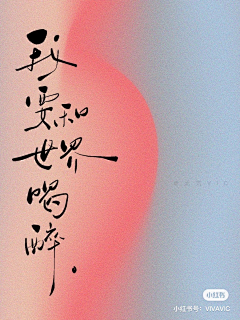 我
要和
世界
喝
醉.
小红书
小红书号：VIVAVIC